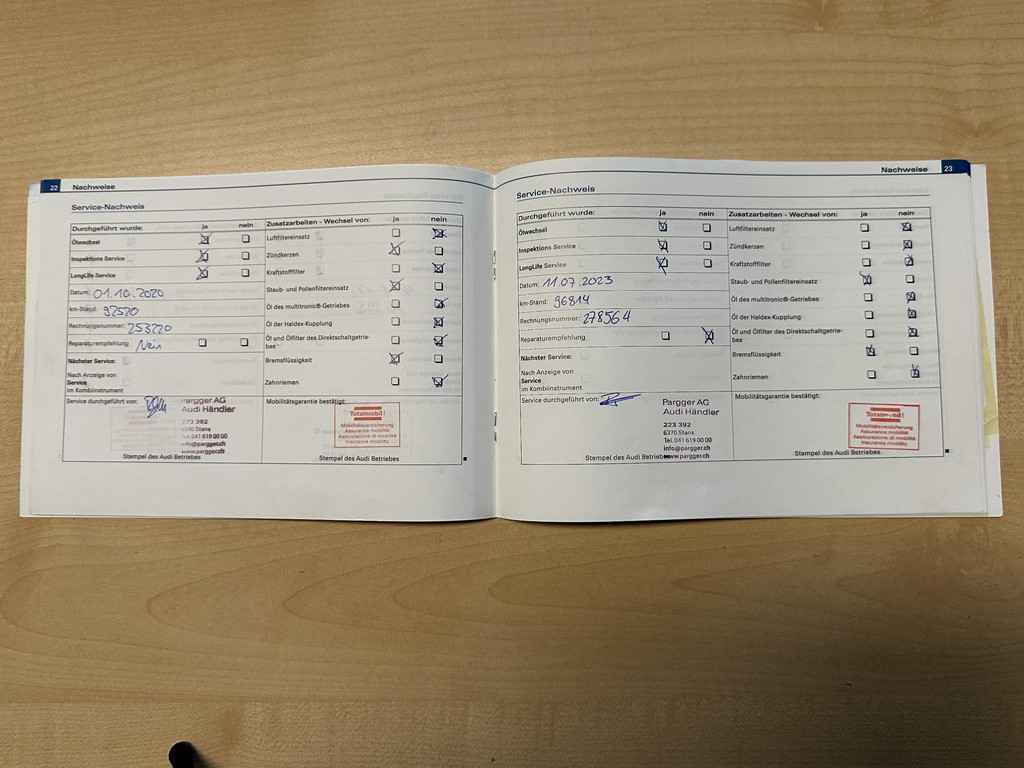 22 Nachweise
Service-Nachweis
Durchgeführt wurde: ja nein
Ölwechsel
Inspektions Service
LongLife Service
Datum: 01.10.2020
km-Stand: 92520
Rechnungsnummer: 253220
Reparaturempfehlung: Nein
Nächster Service:
Nach Anzeige von
Service
im Kombiinstrument
Zusatzarbeiten - Wechsel von: ja nein
Luftfiltereinsatz
Zündkerzen
Kraftstofffilter
Staub- und Pollenfiltereinsatz
Öl des multitronic®-Getriebes
Öl der Haldex-Kupplung
Öl und Ölfilter des Direktschaltgetrie-
bes
Bremsflüssigkeit
Zahnriemen
Service durchgeführt von:
Pargger AG
Audi Händler
223 392
6370 Stans
Tel. 041 619 00 00
info@pargger.ch
www.pargger.ch
Stempel des Audi Betriebes
Mobilitätsgarantie bestätigt:
Totalmobil!
Mobilitätsversicherung
Assurance mobilité
Assicurazione di mobilità
Insurance mobility
Stempel des Audi Betriebes
Nachweise 23
Service-Nachweis
Durchgeführt wurde: ja nein
Ölwechsel
Inspektions Service
LongLife Service
Datum: 11.07.2023
km-Stand: 96814
Rechnungsnummer: 278564
Reparaturempfehlung:
Nächster Service:
Nach Anzeige von
Service
im Kombiinstrument
Zusatzarbeiten - Wechsel von: ja nein
Luftfiltereinsatz
Zündkerzen
Kraftstofffilter
Staub- und Pollenfiltereinsatz
Öl des multitronic®-Getriebes
Öl der Haldex-Kupplung
Öl und Ölfilter des Direktschaltgetrie-
bes
Bremsflüssigkeit
Zahnriemen
Service durchgeführt von:
Pargger AG
Audi Händler
223 392
6370 Stans
Tel. 041 619 00 00
info@pargger.ch
www.pargger.ch
Stempel des Audi Betriebes
Mobilitätsgarantie bestätigt:
Totalmobil!
Mobilitätsversicherung
Assurance mobilité
Assicurazione di mobilità
Insurance mobility
Stempel des Audi Betriebes